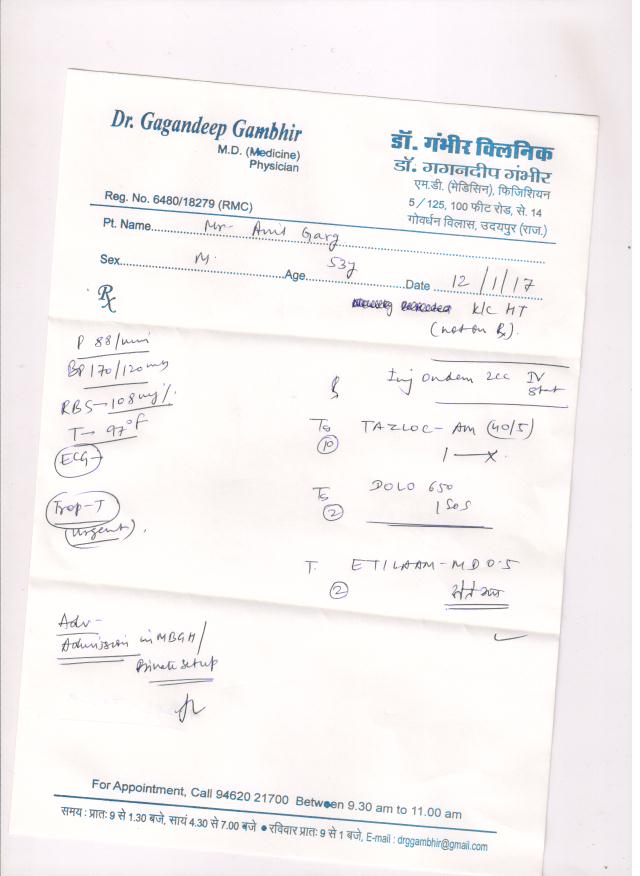 Dr. Gagandeep Gambhir
M.D. (Medicine)
Physician
Reg. No. 6480/18279 (RMC)
डॉ. गंभीर क्लिनिक
डॉ. गगनदीप गंभीर
एम.डी. (मेडिसिन), फिजिशियन
5/125, 100 फीट रोड, से. 14
गोवर्धन विलास, उदयपुर (राज.)
Pt. Name Mr. Anil Garg
Sex M. Age 53y Date 12/1/17
Rx
K/C HT
(not on Rx).
P 88/min
BP 170/120 mmHg
RBS → 108 mg%
T → 97°F
ECG →
Trop-T
(urgent).
Adv-
Admission in MBGH/
Private setup
Inj Ondem 2cc IV
Stat
TAZLOC-AM (40/5)
10
1 — x
DOLO 650
2
1 SOS
T. ETILAAM-MD 0.5
2
For Appointment, Call 94620 21700 Between 9.30 am to 11.00 am
समय : प्रातः 9 से 1.30 बजे, सायं 4.30 से 7.00 बजे ● रविवार प्रातः 9 से 1 बजे, E-mail : drggambhir@gmail.com